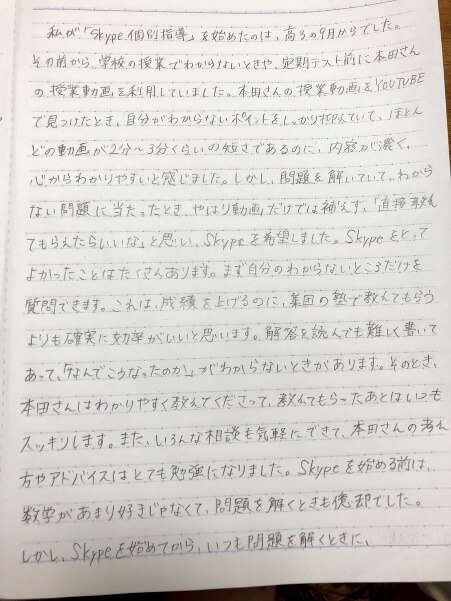 私が「Skype個別指導」を始めたのは、高3の9月からでした。
その前から、学校の授業でわからないときや、定期テスト前に本田さん
の授業動画を利用していました。本田さんの授業動画をYOUTUBE
で見つけたとき、自分がわからないポイントをしっかり抑えていて、ほとん
どの動画が2分〜3分くらいの短さであるのに、内容が濃く、
心からわかりやすいと感じました。しかし、問題を解いていて、わから
ない問題に当たったとき、やはり動画だけでは補えず、「直接教え
てもらえたらいいな」と思い、Skypeを希望しました。Skypeをとって
よかったことはたくさんあります。まず自分のわからないところだけを
質問できます。これは、成績を上げるのに、集団の塾で教えてもらう
よりも確実に効率がいいと思います。解答を読んでも難しく書いて
あって、「なんでこうなったのか」がわからないときがあります。そのとき、
本田さんはわかりやすく教えてくださって、教えてもらったあとはいつも
スッキリします。また、いろんな相談も気軽にできて、本田さんの考え
方やアドバイスはとても勉強になりました。Skypeを始める前は、
数学があまり好きじゃなくて、問題を解くときも億却でした。
しかし、Skypeを始めてから、いつも問題を解くときに、